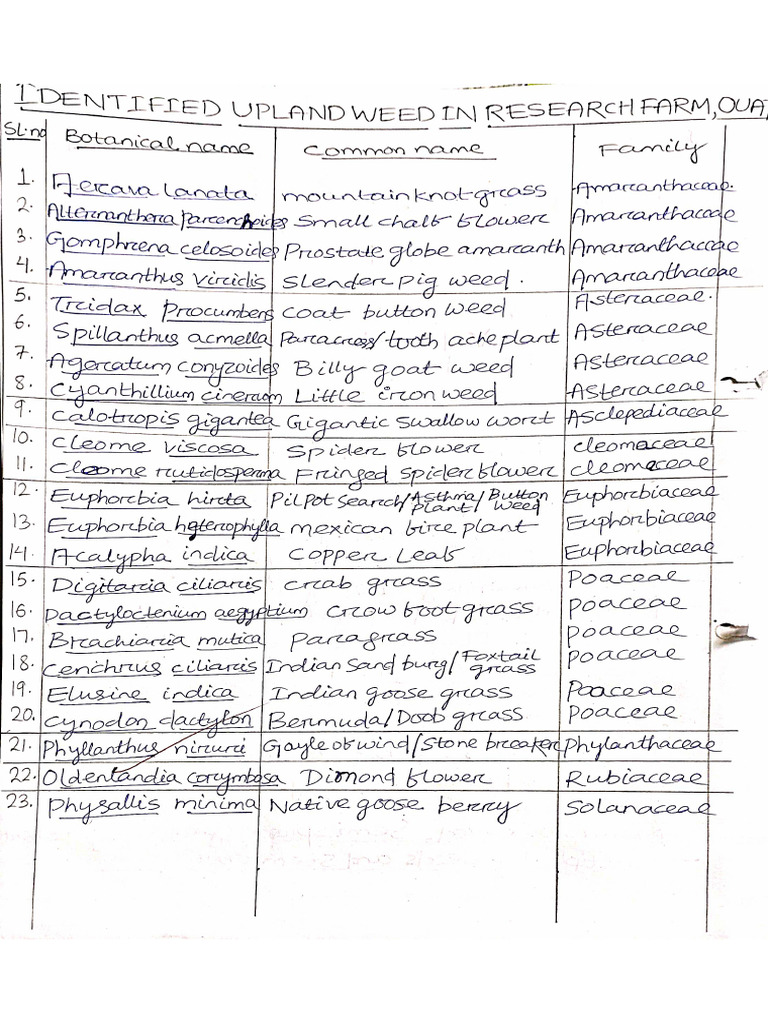 IDENTIFIED UPLAND WEED IN RESEARCH FARM, OUA
SL.no Botanical name Common name Family
1. Aerava lanata mountain knot grass Amaranthaceae.
2. Alternanthera parenchoides Small chalf flower Amaranthaceae
3. Gomphrena celosoides Prostate globe amaranth Amaranthaceae
4. Amaranthus viridis Slender pig weed. Amaranthaceae
5. Tridax Procumbers coat button weed Asteraceae.
6. Spillanthus acmella Paracress/tooth ache plant Asteraceae
7. Ageratum conyzoides Billy goat weed Asteraceae
8. Cyanthillium cinereum Little iron weed Asteraceae
9. Calotropis gigantea Gigantic swallow wort Asclepediaceae
10. Cleome viscosa Spider flower cleomaceae
11. Cleome rutidosperma Fringed spider flower cleomaceae
12. Euphorbia hirta Pil pot search/Asthma plant/Button weed Euphorbiaceae
13. Euphorbia heterophylla mexican fire plant Euphorbiaceae
14. Acalypha indica Copper Leaf Euphorbiaceae
15. Digitaria ciliaris crab grass Poaceae
16. Dactyloctenium aegyptium Crow foot grass Poaceae
17. Brachiaria mutica paragrass Poaceae
18. Cenchrus ciliaris Indian Sand burg/Foxtail grass Poaceae
19. Elusine indica Indian goose grass Poaceae
20. Cynodon dactylon Bermuda/Doob grass Poaceae
21. Phyllanthus niruri Gayle of wind/Stone breaker Phylanthaceae
22. Oldentandia corymbosa Dimond flower Rubiaceae
23. Physallis minima Native goose berry Solanaceae